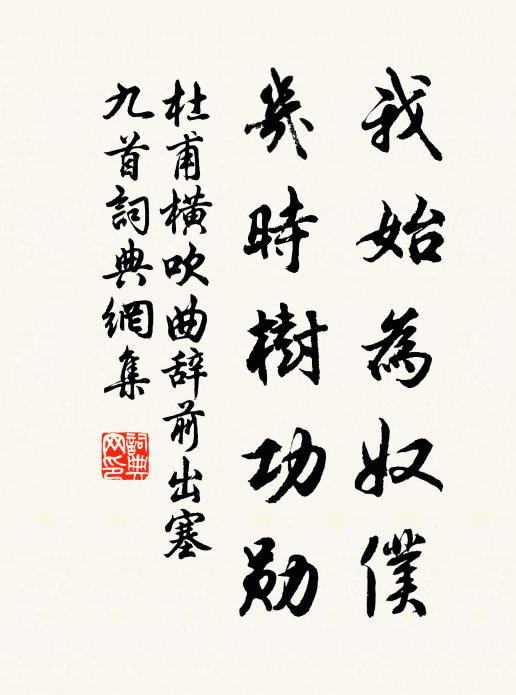 我始為奴僕
幾時樹功勋
杜甫橫吹曲辞前出塞
九首詞典網集
詞典网印